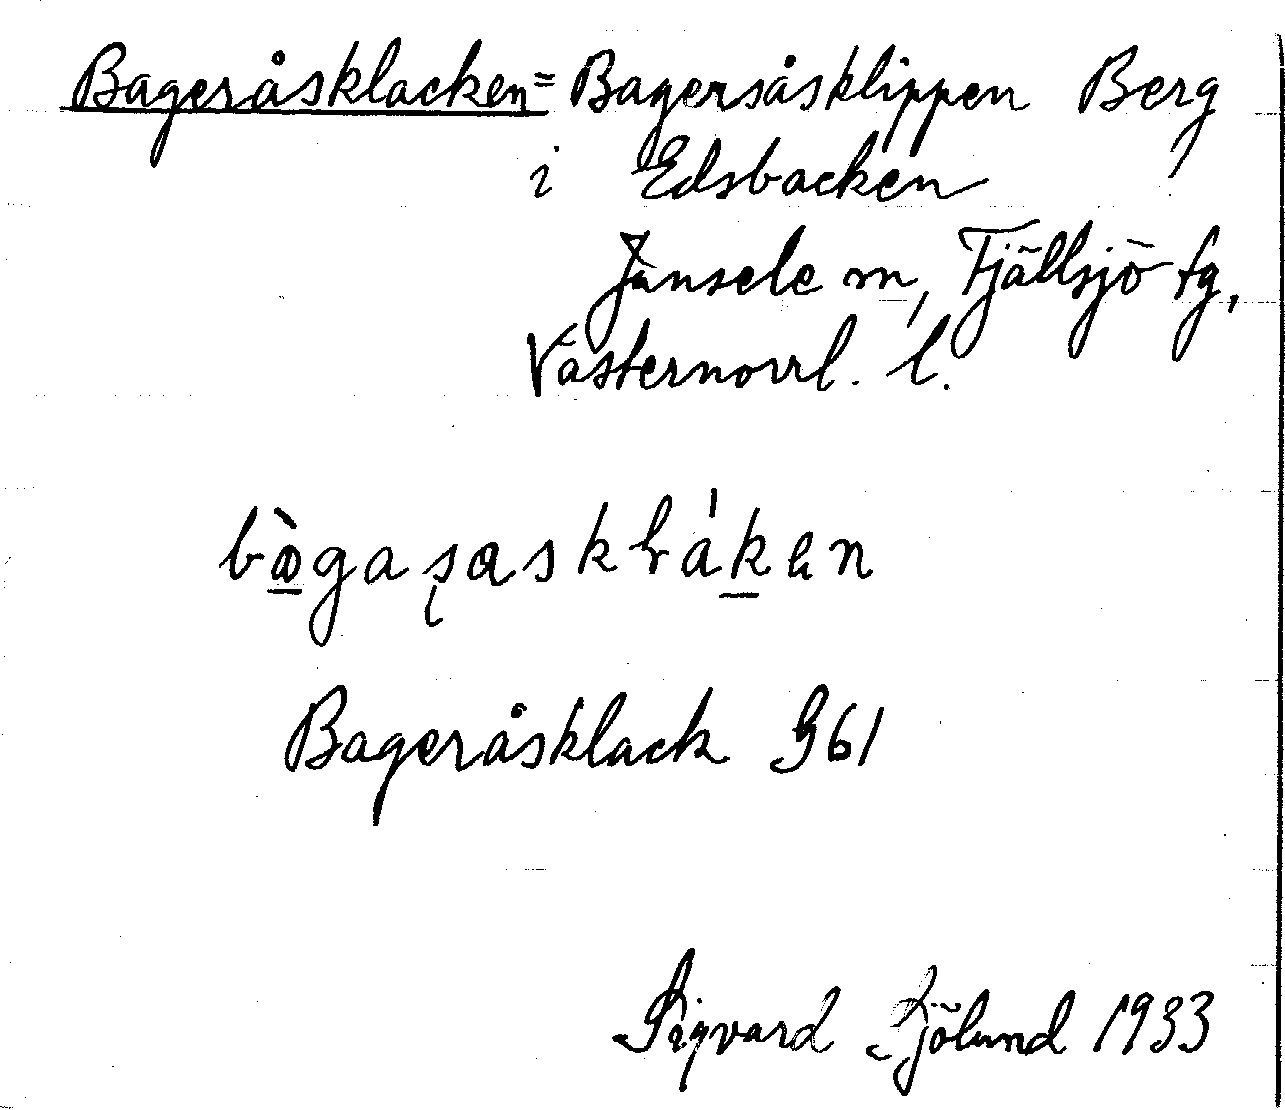 Bageråsklacken = Bagersåsklippen Berg
i Edsbacken
Junsele sn, Fjällsjö tg,
Västernorrl. l.
bògaşaskl̀áken
Bageråsklack 961
Sigvard Sjölund 1933